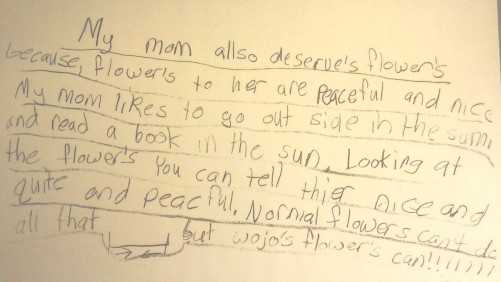 My mom allso deserve's flower's
because, flower's to her are peaceful and nice
My mom likes to go out side in the sum
and read a book in the sun. Looking at
the flower's You can tell thier nice and
quite and peacful. Normal flowers can't do
all that but wojo's flower's can!!!!!!!